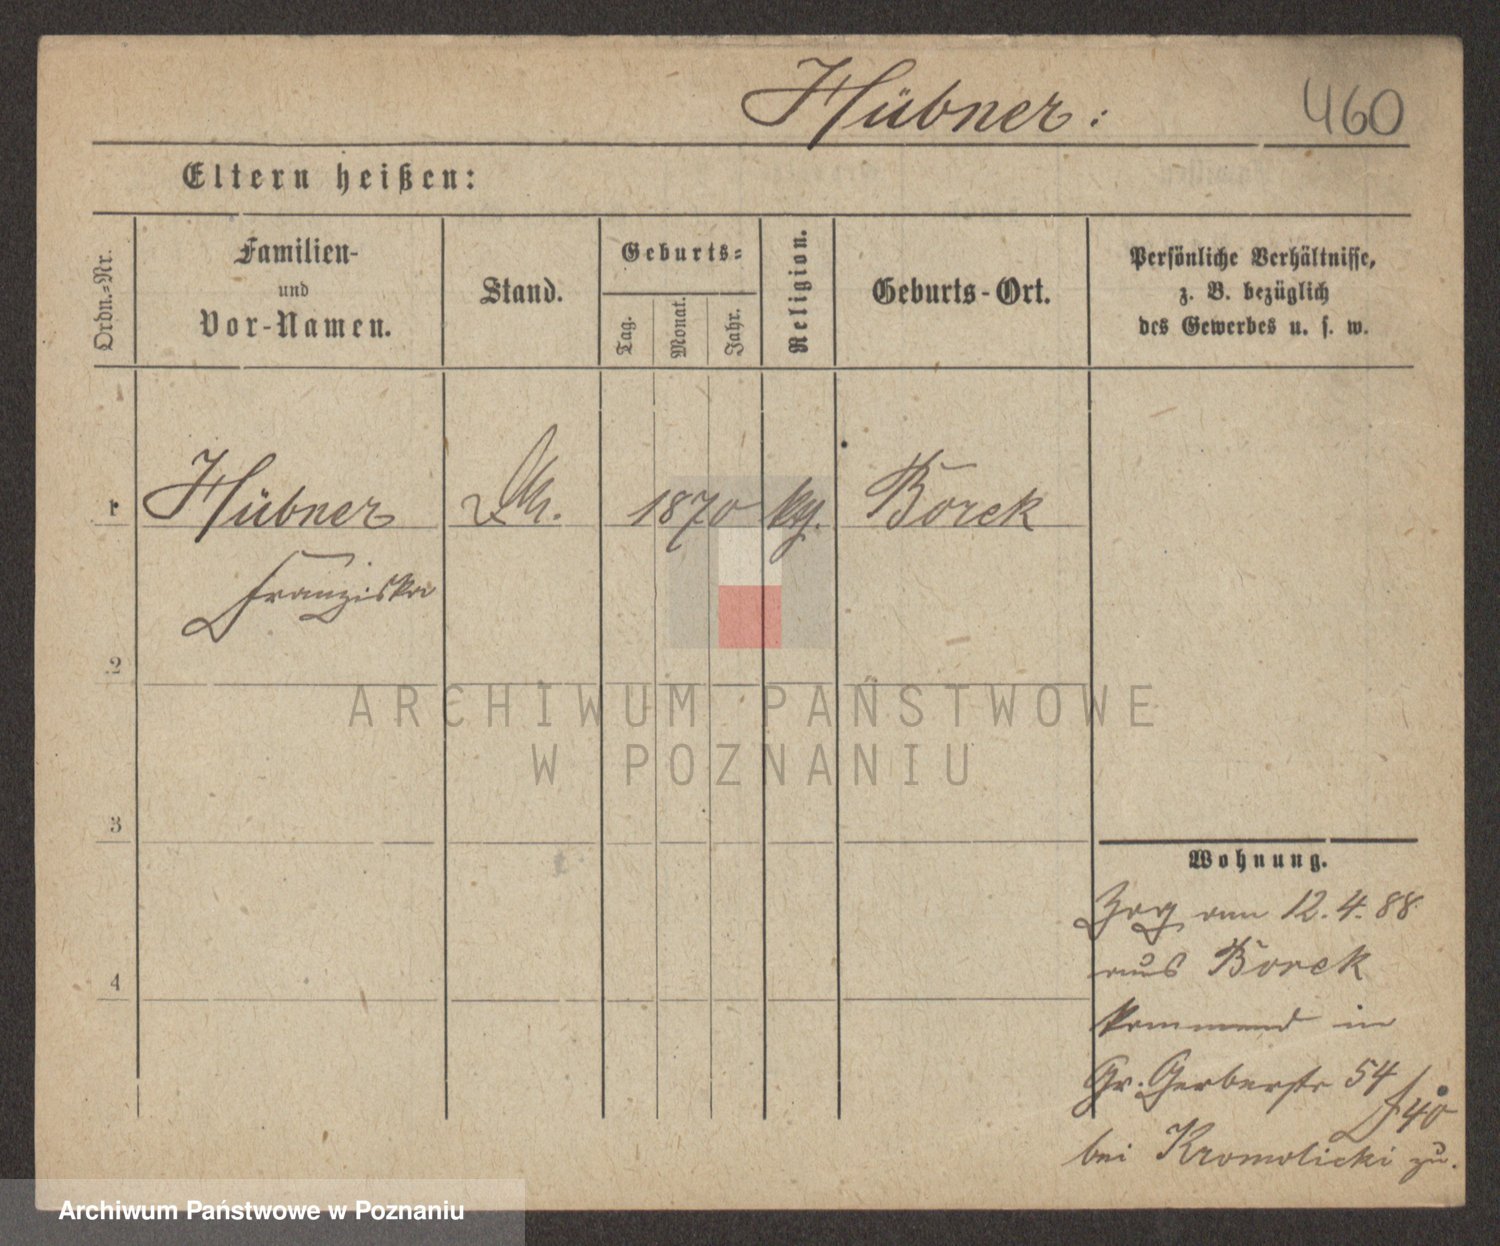 Hübner:
460
Eltern heißen:
Ordn.-Nr.
Familien-
und
Vor-Namen.
Stand.
Geburts-
Tag.
Monat.
Jahr.
Religion.
Geburts-Ort.
Persönliche Verhältnisse,
z. B. bezüglich
des Gewerbes u. s. w.
1
Hübner
1870
Borek
Franziska
2
ARCHIWUM PAŃSTWOWE
W POZNANIU
3
Wohnung.
Zog am 12.4.88.
aus Borek
4
kommend in
Gr. Gerberstr 54
40
bei Kromolicki zu.
Archiwum Państwowe w Poznaniu